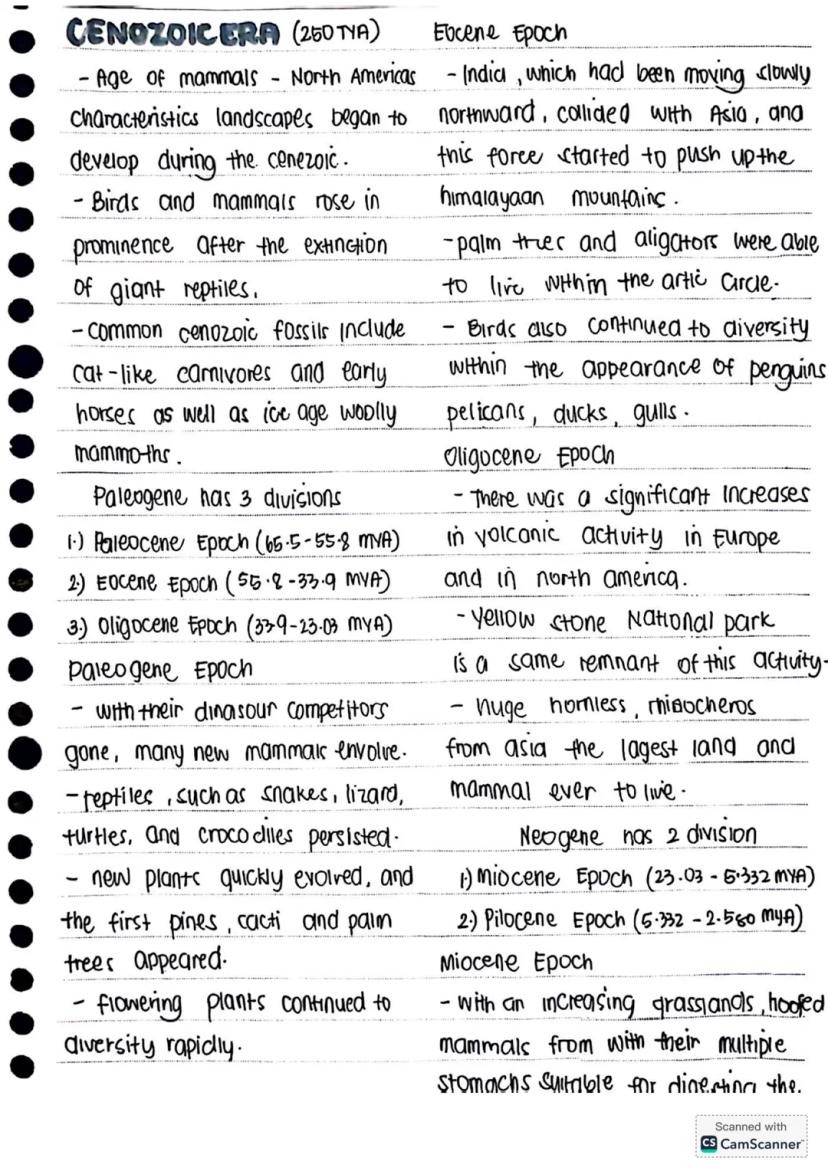 CENOZOIC ERA (250TYA)
- Age of mammals - North Americas
characteristics landscapes began to
develop during the cenezoic.
- Birds and mammals rose in
prominence after the extinction
of giant reptiles.
- common cenozoic fossils include
cat-like carnivores and early
horses as well as ice age woolly
mammoths.
Paleogene has 3 divisions
1.) Paleocene Epoch (65.5-55.8 MYA)
2.) Eocene Epoch (55.8-33.9 MYA)
3.) Oligocene Epoch (33.9-23.03 MYA)
Paleogene Epoch
- with their dinasour competitors
gone, many new mammals envolve.
- reptiles, such as snakes, lizard,
turtles, and crocodiles persisted.
- new plants quickly evolved, and
the first pines, cacti and palm
trees appeared.
- flowering plants continued to
diversity rapidly.
Eocene Epoch
- India, which had been moving slowly
northward, collided with Asia, and
this force started to push up the
himalayaan mountains.
- palm trees and aligators were able
to live within the artic circle.
- Birds also continued to diversity
within the appearance of penguins
pelicans, ducks, gulls.
Oligocene Epoch
- There was a significant increases
in volcanic activity in Europe
and in north america.
- yellow stone National park
is a same remnant of this activity.
- huge hornless, rhinocheros
from asia the lagest land and
mammal ever to live.
Neogene has 2 division
1.) Miocene Epoch (23.03 - 5.332 MYA)
2.) Pilocene Epoch (5.332 - 2.580 MYA)
Miocene Epoch
- with an increasing grasslands, hoofed
mammals from with their multiple
stomachs suitable for digesting the.
Scanned with
CS CamScanner